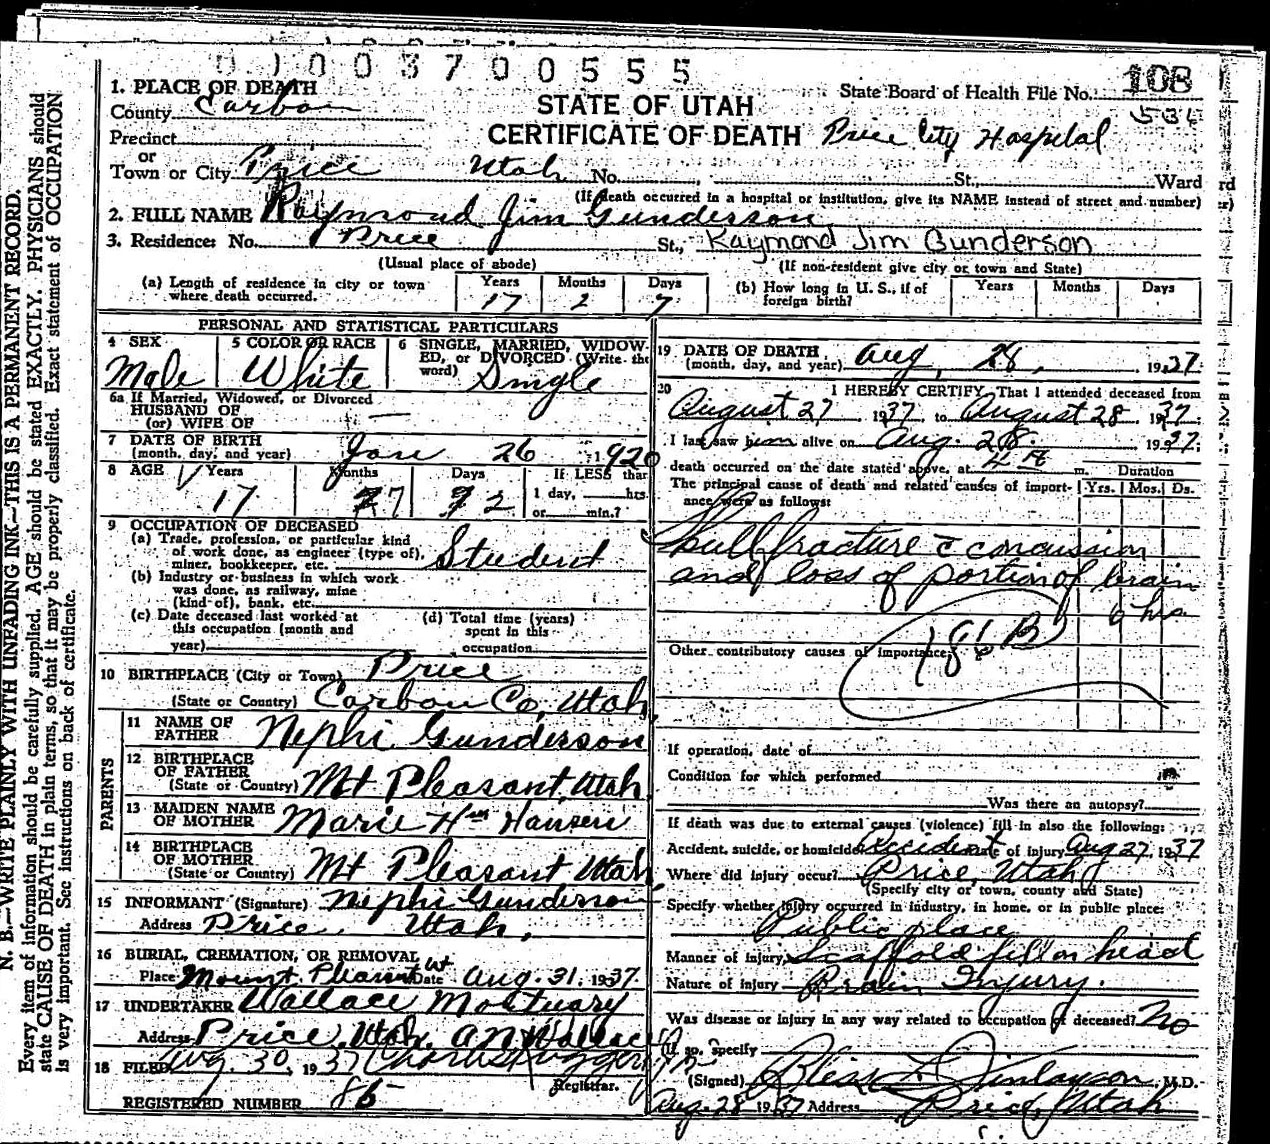 0 1 0 0 3 7 0 0 5 5 5
1. PLACE OF DEATH
County Carbon
Precinct
or
Town or City Price Utah No. St., Ward
STATE OF UTAH
CERTIFICATE OF DEATH Price City Hospital
State Board of Health File No. 108
(If death occurred in a hospital or institution, give its NAME instead of street and number)
2. FULL NAME Raymond Jim Gunderson
3. Residence: No. Price St., Raymond Jim Gunderson
(Usual place of abode) (If non-resident give city or town and State)
(a) Length of residence in city or town where death occurred. Years 17 Months 2 Days 7
(b) How long in U. S., if of foreign birth? Years Months Days
PERSONAL AND STATISTICAL PARTICULARS
4 SEX Male
5 COLOR OR RACE White
6 SINGLE, MARRIED, WIDOWED, or DIVORCED (Write the word) Single
6a If Married, Widowed, or Divorced
HUSBAND OF
(or) WIFE OF —
7 DATE OF BIRTH
(month, day, and year) 26 1920
8 AGE Years 17 Months 7 Days 2 If LESS than
1 day, hrs.
or min.?
9 OCCUPATION OF DECEASED
(a) Trade, profession, or particular kind
of work done, as engineer (type of),
miner, bookkeeper, etc. Student
(b) Industry or business in which work
was done, as railway, mine
(kind of), bank, etc.
(c) Date deceased last worked at
this occupation (month and
year)
(d) Total time (years)
spent in this
occupation
10 BIRTHPLACE (City or Town) Price
(State or Country) Carbon Co, Utah
PARENTS
11 NAME OF
FATHER Nephi Gunderson
12 BIRTHPLACE
OF FATHER
(State or Country) Mt Pleasant, Utah
13 MAIDEN NAME
OF MOTHER Marie Hansen
14 BIRTHPLACE
OF MOTHER
(State or Country) Mt Pleasant Utah
15 INFORMANT (Signature) Nephi Gunderson
Address Price, Utah,
16 BURIAL, CREMATION, OR REMOVAL
Place Mount Pleasant Ut Date Aug. 31, 1937
17 UNDERTAKER Wallace Mortuary
Address Price, Utah.
18 FILED Aug. 30, 1937
Registrar.
REGISTERED NUMBER 86
19 DATE OF DEATH
(month, day, and year) Aug, 28, 1937
20 I HEREBY CERTIFY, That I attended deceased from
August 27 1937 to August 28 1937.
I last saw him alive on Aug. 28. 1937.
death occurred on the date stated above, at 4 m. Duration
The principal cause of death and related causes of importance were as follows: Yrs. Mos. Ds.
Skull fracture c̄ concussion
and loss of portion of brain
6 hrs
Other contributory causes of importance:
If operation, date of
Condition for which performed
Was there an autopsy?
If death was due to external causes (violence) fill in also the following:
Accident, suicide, or homicide Accident Date of injury Aug 27, 1937
Where did injury occur? Price, Utah
(Specify city or town, county and State)
Specify whether injury occurred in industry, in home, or in public place:
Public place
Manner of injury Scaffold fell on head
Nature of injury Brain Injury.
Was disease or injury in any way related to occupation of deceased? No
If so, specify
(Signed) Finlayson, M.D.
Aug. 28 1937 Address Price, Utah
N. B.—WRITE PLAINLY WITH UNFADING INK—THIS IS A PERMANENT RECORD.
Every item of information should be carefully supplied. AGE should be stated EXACTLY. PHYSICIANS should
state CAUSE OF DEATH in plain terms, so that it may be properly classified. Exact statement of OCCUPATION
is very important. See instructions on back of certificate.